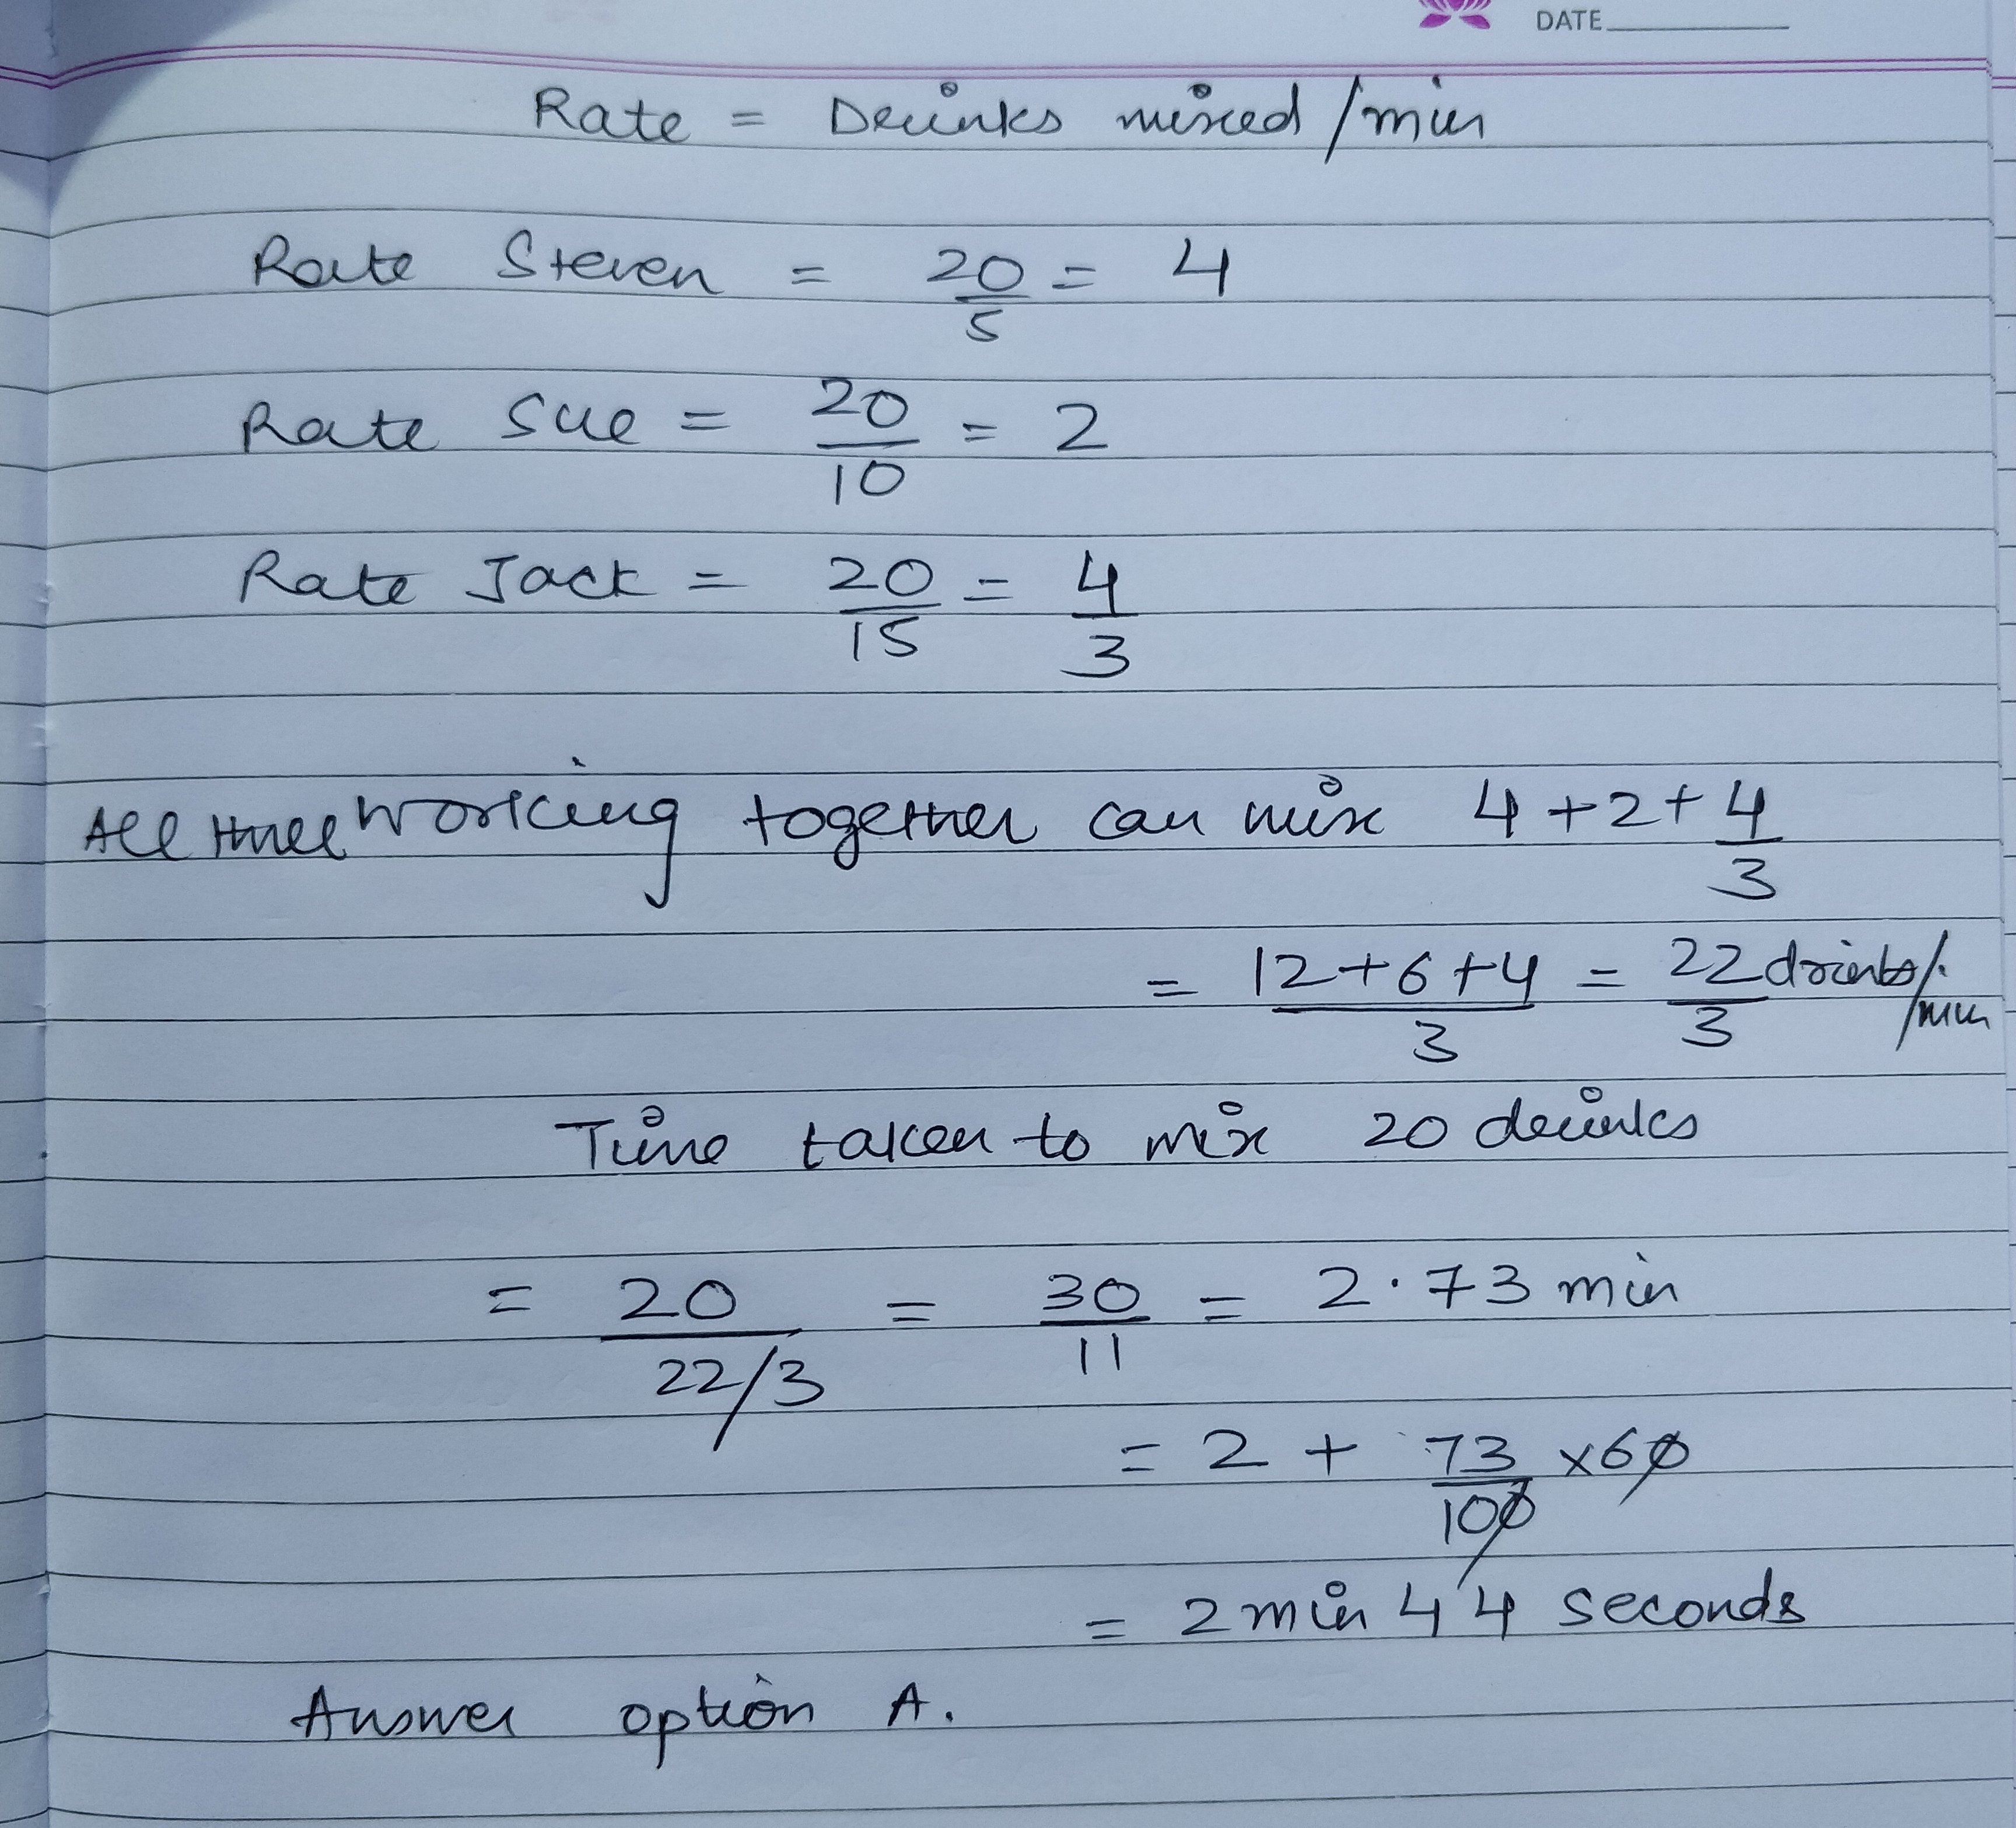 DATE
Rate = Drinks mixed /min
Rate Steven = 20/5 = 4
Rate Sue = 20/10 = 2
Rate Jack = 20/15 = 4/3
All three working together can mix 4 + 2 + 4/3
= 12+6+4/3 = 22/3 drinks/min
Time taken to mix 20 drinks
= 20/22/3 = 30/11 = 2.73 min
= 2 + 73/100 x60
= 2 min 44 seconds
Answer option A.